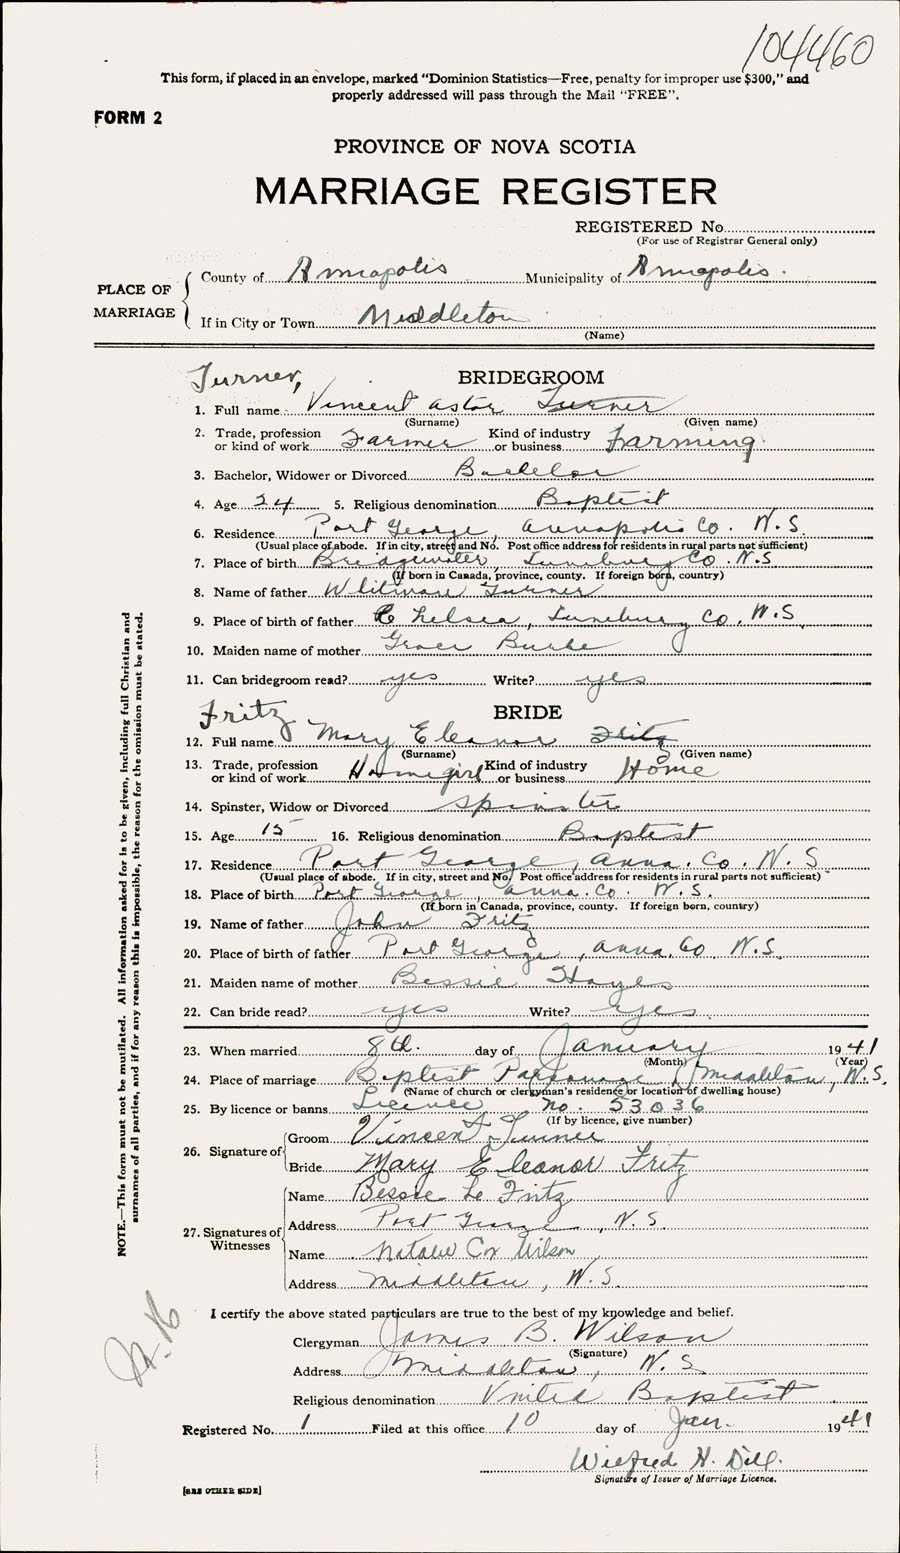 104460
This form, if placed in an envelope, marked “Dominion Statistics—Free, penalty for improper use $300,” and
properly addressed will pass through the Mail “FREE”.
FORM 2
PROVINCE OF NOVA SCOTIA
MARRIAGE REGISTER
REGISTERED No.
(For use of Registrar General only)
PLACE OF MARRIAGE
County of Annapolis Municipality of Annapolis.
If in City or Town Middleton
(Name)
Turner, BRIDEGROOM
1. Full name Vincent Astor Turner
(Surname) (Given name)
2. Trade, profession or kind of work Farmer Kind of industry or business Farming
3. Bachelor, Widower or Divorced Bachelor
4. Age 24 5. Religious denomination Baptist
6. Residence Port George, Annapolis Co. N.S.
(Usual place of abode. If in city, street and No. Post office address for residents in rural parts not sufficient)
7. Place of birth Bridgewater, Lunenburg Co. N.S
(If born in Canada, province, county. If foreign born, country)
8. Name of father Whitman Turner
9. Place of birth of father Chelsea, Lunenburg Co. N.S.
10. Maiden name of mother Grace Burke
11. Can bridegroom read? yes Write? yes
Fritz BRIDE
12. Full name Mary Eleanor Fritz
(Surname) (Given name)
13. Trade, profession or kind of work Home girl Kind of industry or business Home
14. Spinster, Widow or Divorced Spinster
15. Age 15 16. Religious denomination Baptist
17. Residence Port George, Anna. Co. N.S
(Usual place of abode. If in city, street and No. Post office address for residents in rural parts not sufficient)
18. Place of birth Port George, Anna. Co. N.S.
(If born in Canada, province, county. If foreign born, country)
19. Name of father John Fritz
20. Place of birth of father Port George, Anna. Co N.S.
21. Maiden name of mother Bessie Hayes
22. Can bride read? yes Write? yes.
23. When married 8th. day of January 1941
(Month) (Year)
24. Place of marriage Baptist Parsonage, Middleton, N.S.
(Name of church or clergyman's residence or location of dwelling house)
25. By licence or banns Licence no. 53036
(If by licence, give number)
26. Signature of
Groom Vincent A Turner
Bride Mary Eleanor Fritz
27. Signatures of Witnesses
Name Bessie Le Fritz
Address Port George, N.S.
Name Natalie Cox Wilson
Address Middleton, N.S.
I certify the above stated particulars are true to the best of my knowledge and belief.
Clergyman James B. Wilson
(Signature)
Address Middleton, N.S.
Religious denomination United Baptist
Registered No. 1 Filed at this office 10 day of Jan. 1941
Wilfred H. Dill.
Signature of Issuer of Marriage Licence.
[SEE OTHER SIDE]
NOTE.—This form must not be mutilated. All information asked for is to be given, including full Christian and
surnames of all parties, and if for any reason this is impossible, the reason for the omission must be stated.